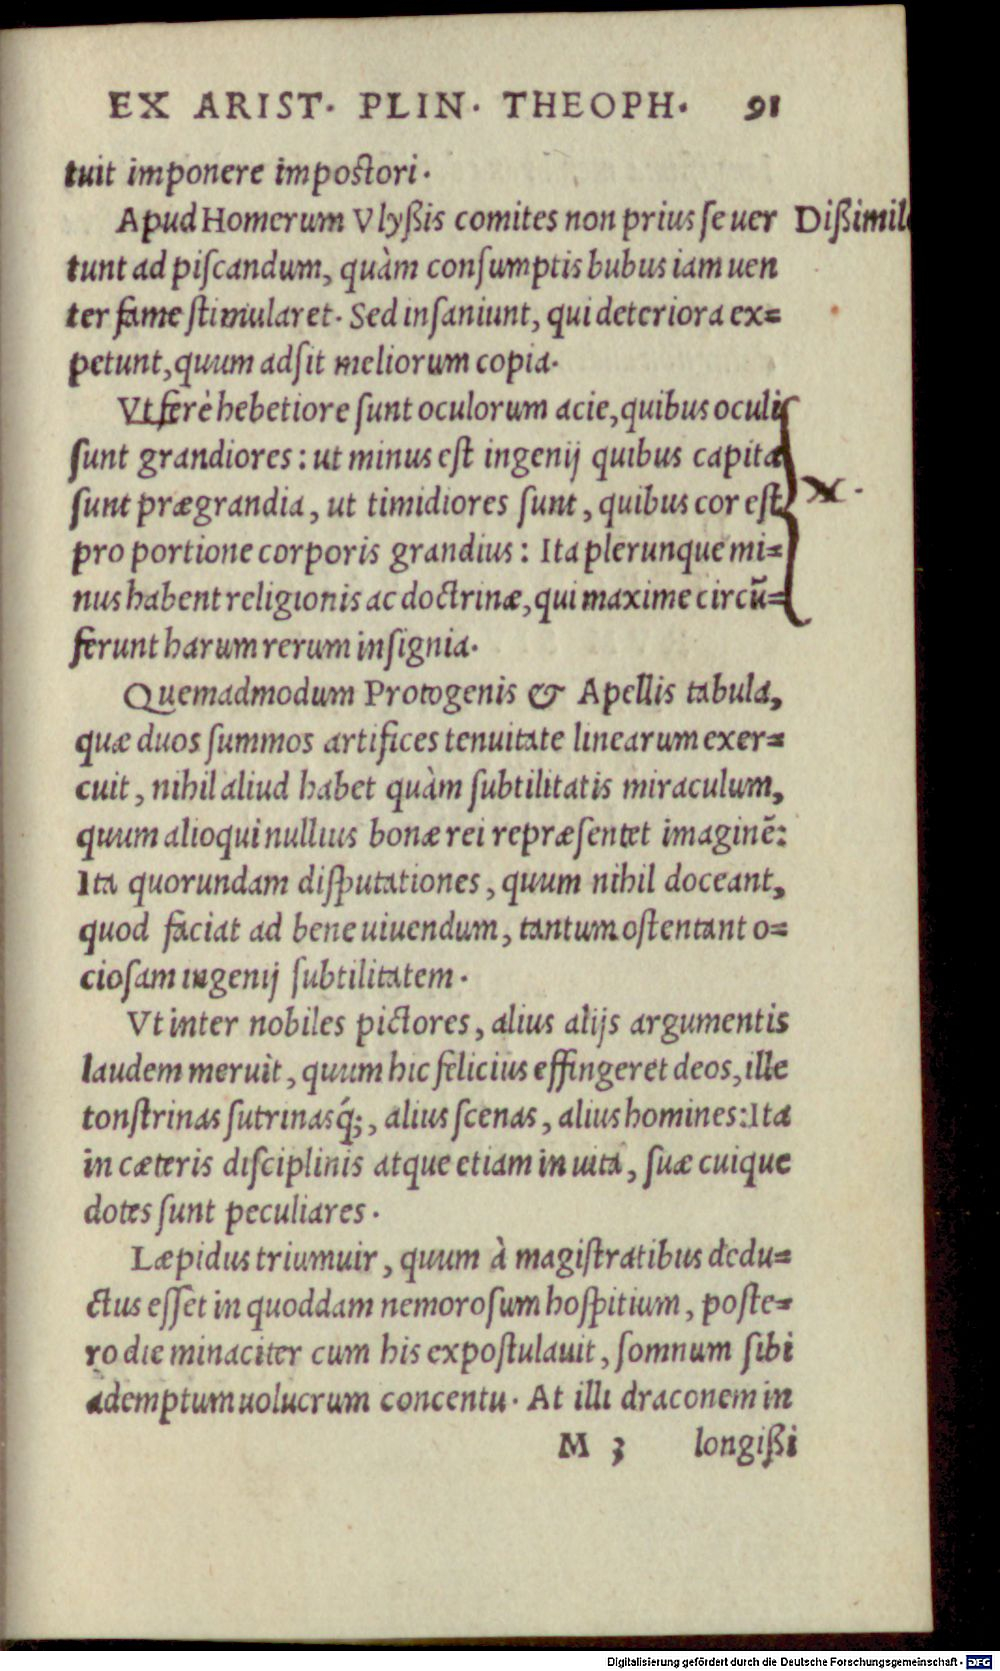 EX ARIST. PLIN. THEOPH. 91
tuit imponere impostori.
Apud Homerum Vlyßis comites non prius se uer Dißimil
tunt ad piscandum, quàm consumptis bubus iam uen
ter fame stimularet. Sed insaniunt, qui deteriora ex=
petunt, quum adsit meliorum copia.
Vt ferè hebetiore sunt oculorum acie, quibus oculi
sunt grandiores: ut minus est ingenij quibus capita
sunt prægrandia, ut timidiores sunt, quibus cor est
pro portione corporis grandius: Ita plerunque mi=
nus habent religionis ac doctrinæ, qui maxime circũ=
ferunt harum rerum insignia.
Quemadmodum Protogenis & Apellis tabula,
quæ duos summos artifices tenuitate linearum exer=
cuit, nihil aliud habet quàm subtilitatis miraculum,
quum alioqui nullius bonæ rei repræsentet imaginẽ:
Ita quorundam disputationes, quum nihil doceant,
quod faciat ad bene uiuendum, tantum ostentant o=
ciosam ingenij subtilitatem.
Vt inter nobiles pictores, alius alijs argumentis
laudem meruit, quum hic felicius effingeret deos, ille
tonstrinas sutrinasq́;, alius scenas, alius homines: Ita
in cæteris disciplinis atque etiam in uita, suæ cuique
dotes sunt peculiares.
Læpidus triumuir, quum à magistratibus dedu=
ctus esset in quoddam nemorosum hospitium, poste=
ro die minaciter cum his expostulauit, somnum sibi
ademptum uolucrum concentu. At illi draconem in
M 3 longißi
Digitalisierung gefördert durch die Deutsche Forschungsgemeinschaft - DFG